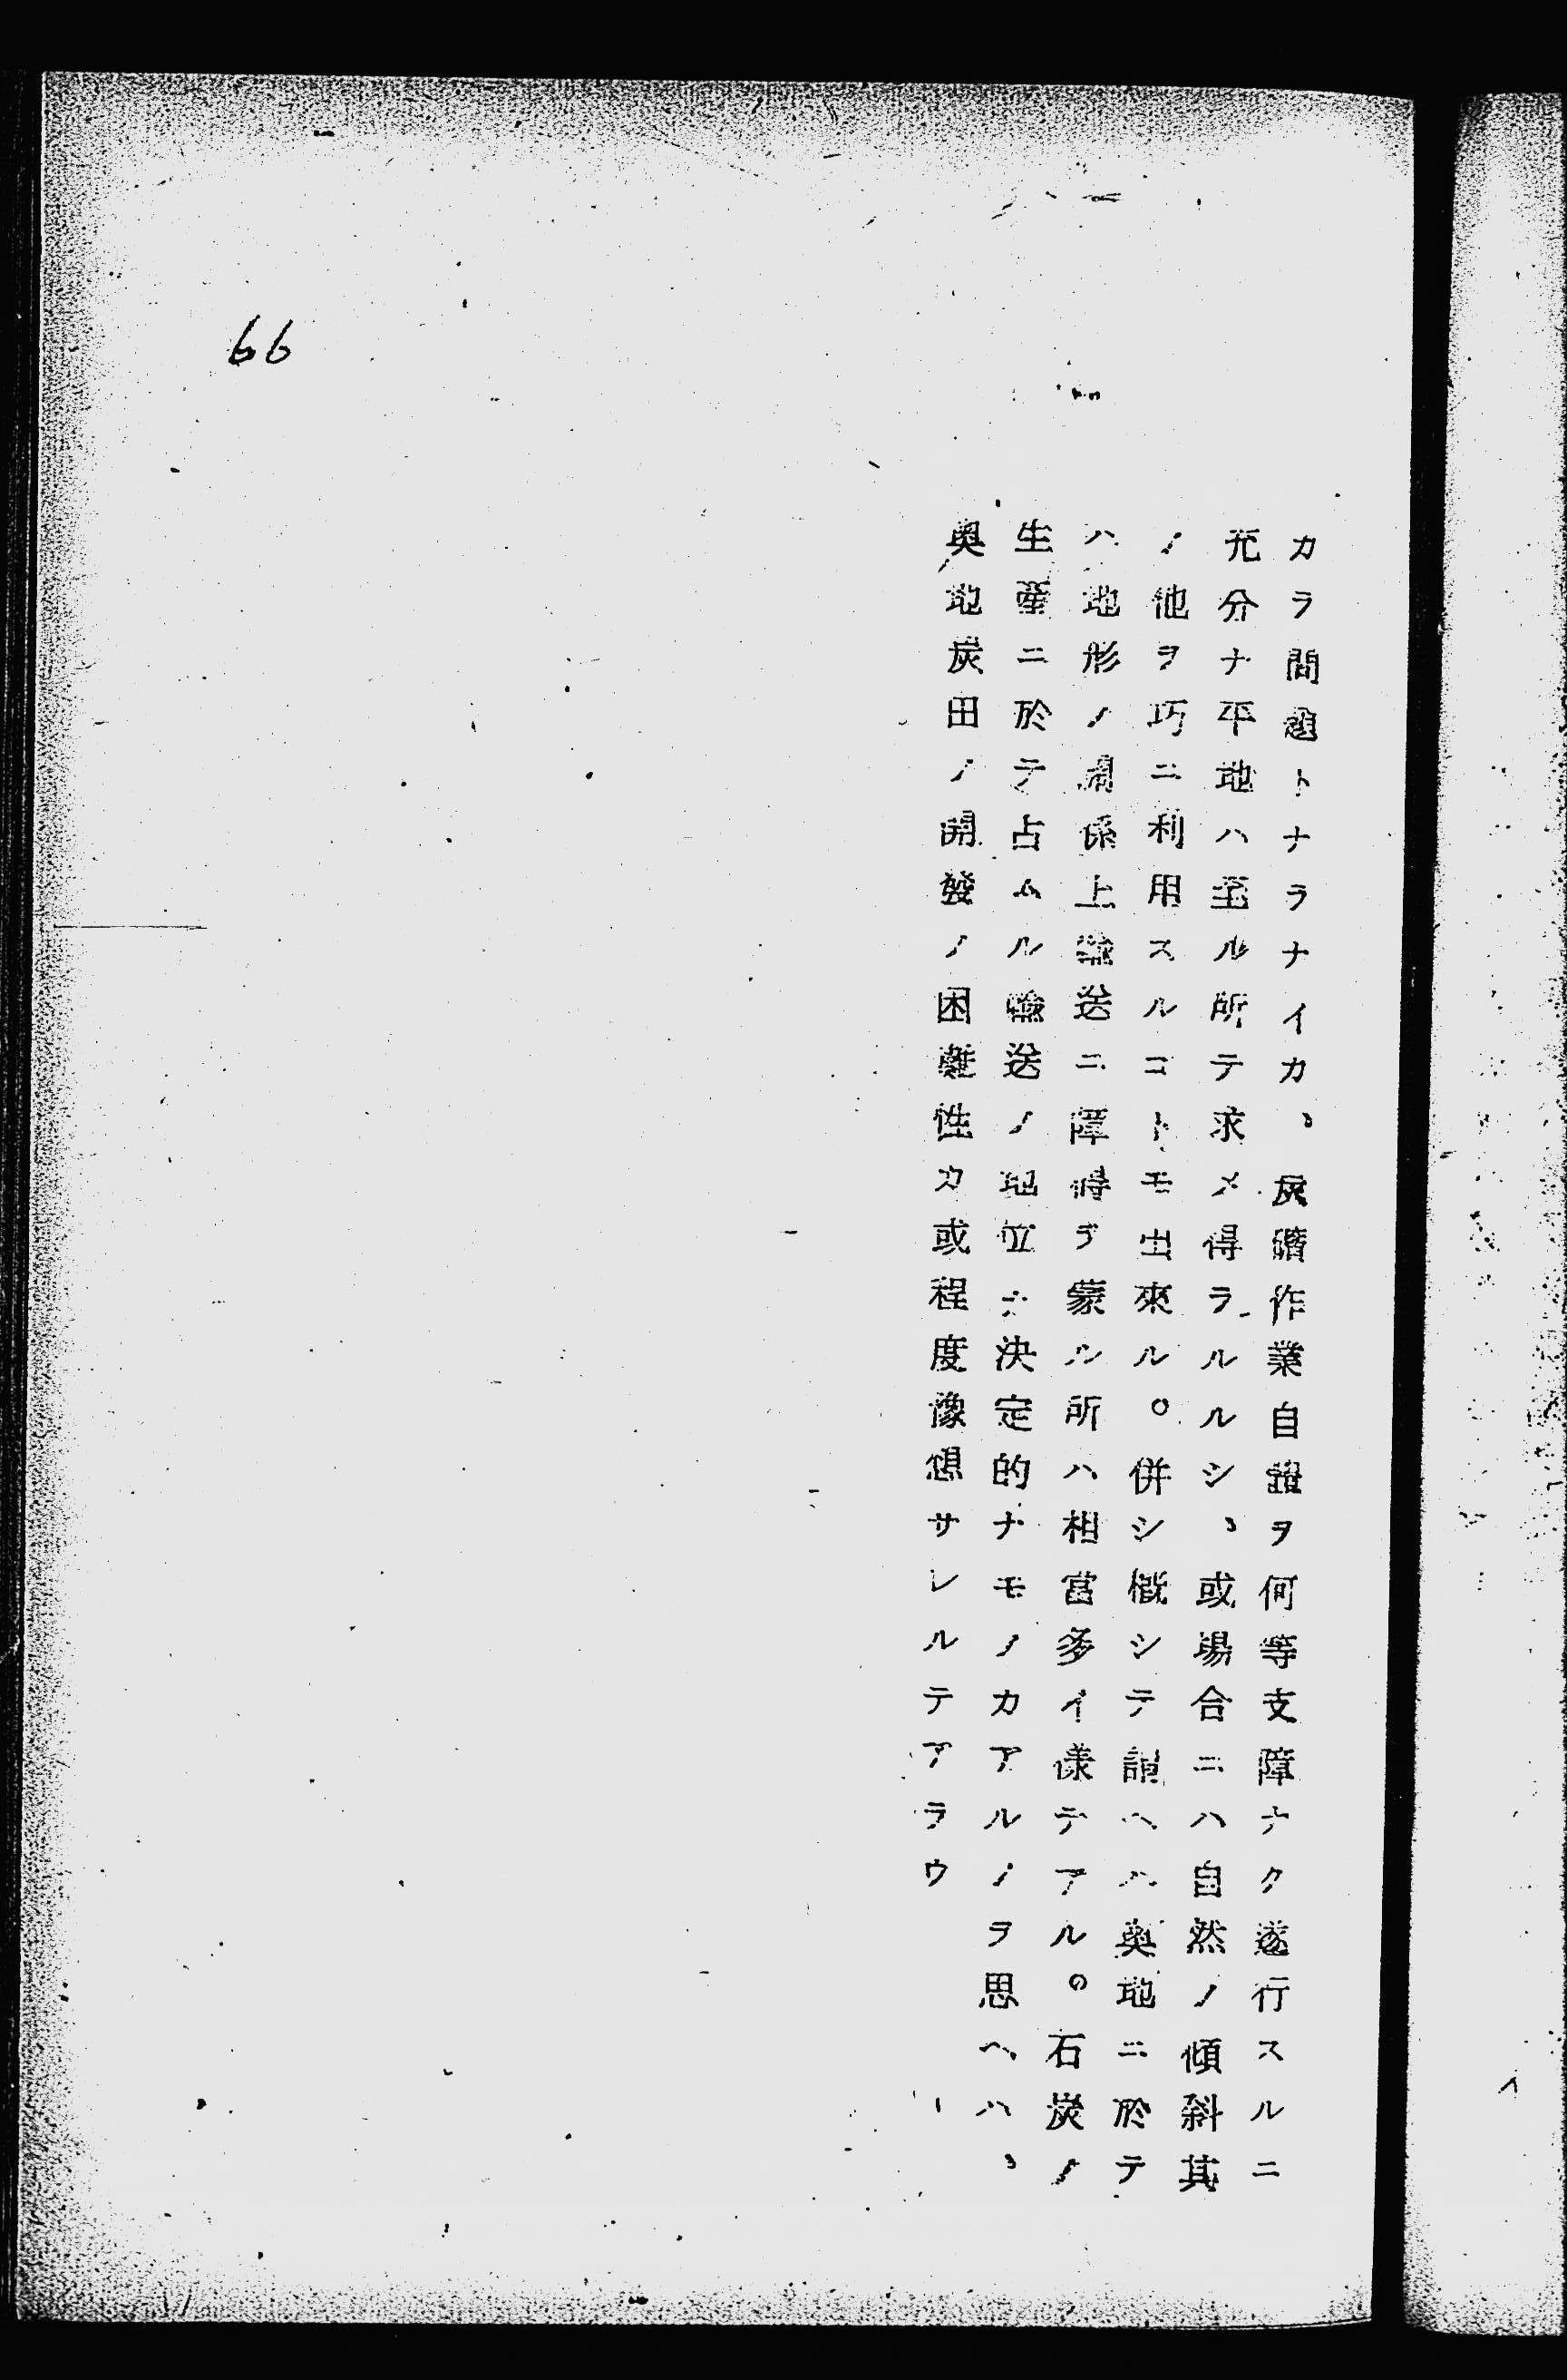 カラ問題トナラナイカ、炭礦作業自體ヲ何等支障ナク遂行スルニ
充分ナ平地ハ至ル所テ求メ得ラルルシ、或場合ニハ自然ノ傾斜其
ノ他ヲ巧ニ利用スルコトモ出來ル。併シ槪シテ謂ヘハ奧地ニ於テ
ハ地形ノ關係上輸送ニ障碍ヲ蒙ル所ハ相當多イ樣テアル。石炭ノ
生產ニ於テ占ムル輸送ノ地位ニ決定的ナモノカアルノヲ思ヘハ、
奧地炭田ノ開發ノ困難性カ或程度豫想サレルテアラウ
66